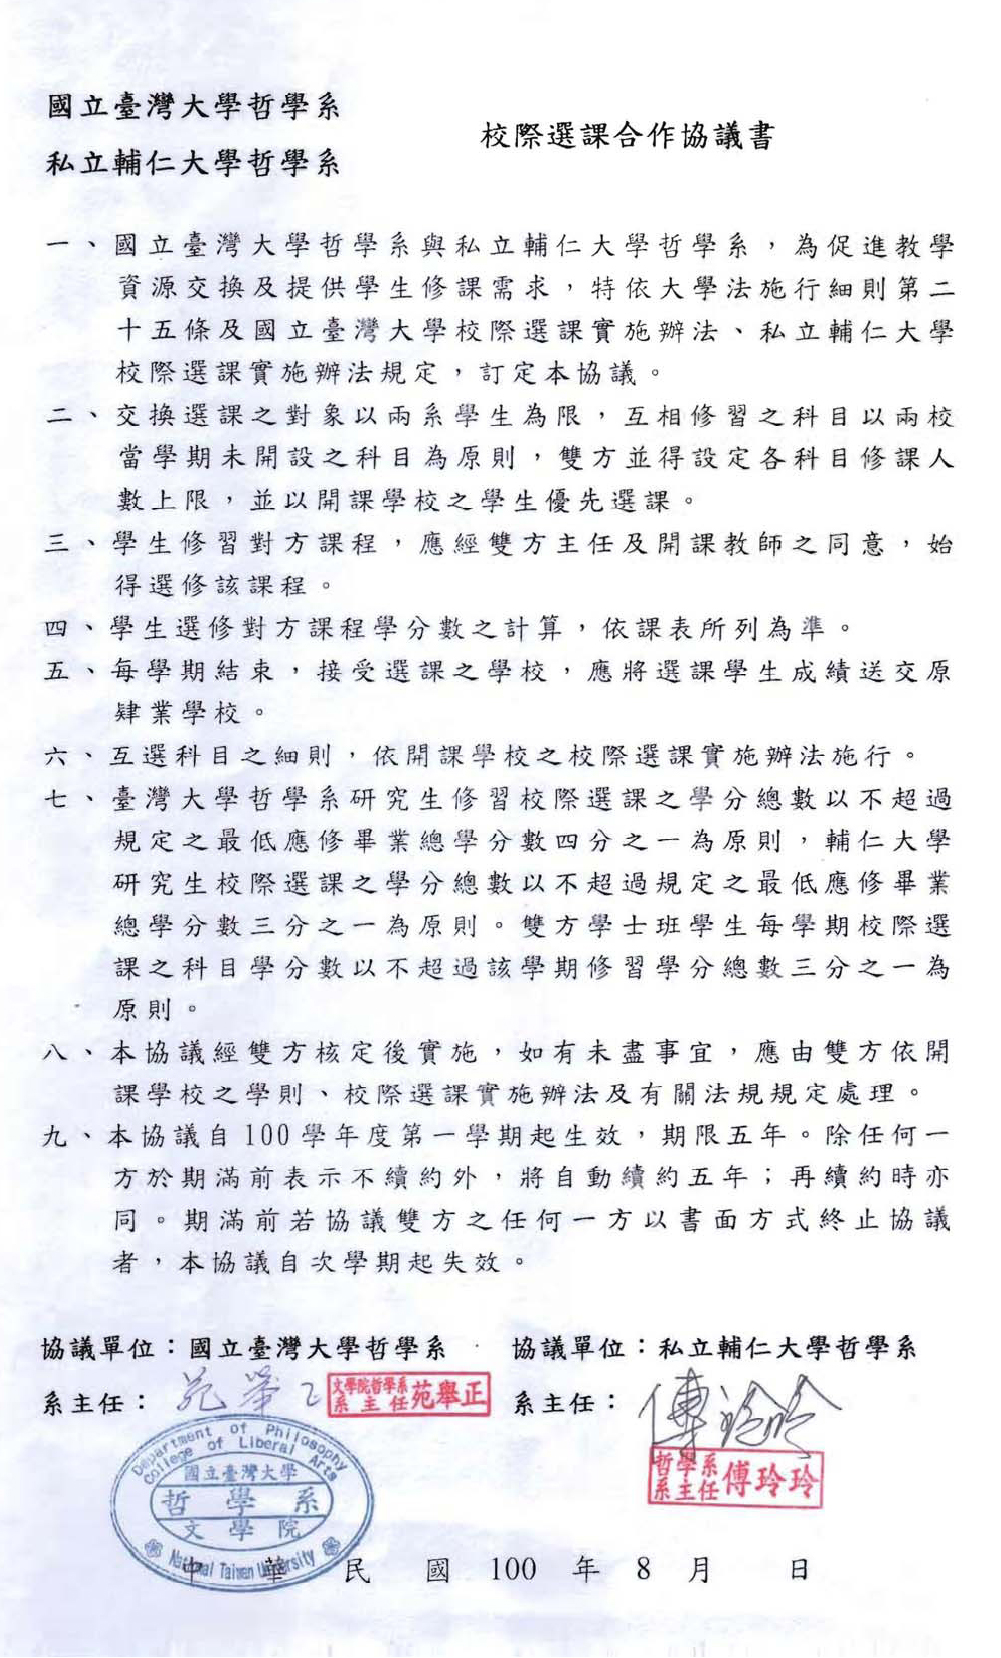 國立臺灣大學哲學系
私立輔仁大學哲學系
校際選課合作協議書
一、國立臺灣大學哲學系與私立輔仁大學哲學系，為促進教學
資源交換及提供學生修課需求，特依大學法施行細則第二
十五條及國立臺灣大學校際選課實施辦法、私立輔仁大學
校際選課實施辦法規定，訂定本協議。
二、交換選課之對象以兩系學生為限，互相修習之科目以兩校
當學期未開設之科目為原則，雙方並得設定各科目修課人
數上限，並以開課學校之學生優先選課。
三、學生修習對方課程，應經雙方主任及開課教師之同意，始
得選修該課程。
四、學生選修對方課程學分數之計算，依課表所列為準。
五、每學期結束，接受選課之學校，應將選課學生成績送交原
肄業學校。
六、互選科目之細則，依開課學校之校際選課實施辦法施行。
七、臺灣大學哲學系研究生修習校際選課之學分總數以不超過
規定之最低應修畢業總學分數四分之一為原則，輔仁大學
研究生校際選課之學分總數以不超過規定之最低應修畢業
總學分數三分之一為原則。雙方學士班學生每學期校際選
課之科目學分數以不超過該學期修習學分總數三分之一為
原則。
八、本協議經雙方核定後實施，如有未盡事宜，應由雙方依開
課學校之學則、校際選課實施辦法及有關法規規定處理。
九、本協議自100學年度第一學期起生效，期限五年。除任何一
方於期滿前表示不續約外，將自動續約五年；再續約時亦
同。期滿前若協議雙方之任何一方以書面方式終止協議
者，本協議自次學期起失效。
協議單位：國立臺灣大學哲學系
系主任：苑舉正
文學院哲學系
系主任苑舉正
協議單位：私立輔仁大學哲學系
系主任：傅玲玲
哲學系
系主任傅玲玲
Department of Philosophy
College of Liberal Arts
國立臺灣大學
哲學系
文學院
National Taiwan University
中華民國100年8月 日